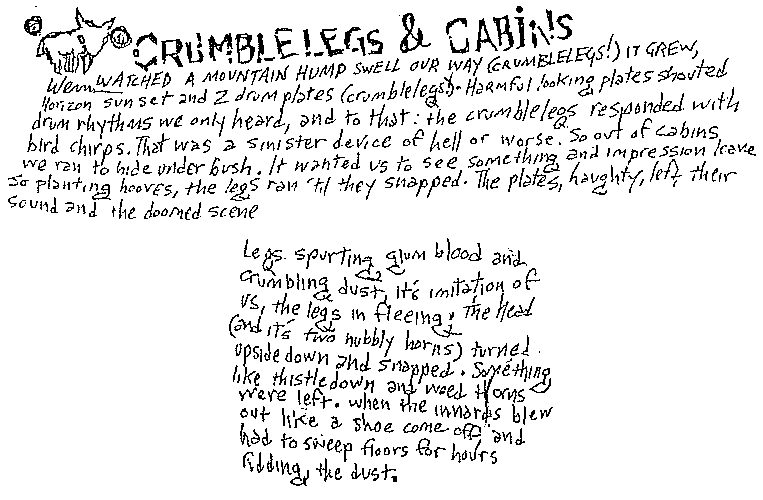 CRUMBLELEGS & CABINS
We WATCHED A MOUNTAIN HUMP SWELL OUR WAY (CRUMBLELEGS!) IT GREW,
Horizon sun set and 2 drum plates (crumblelegs). Harmful looking plates shouted
drum rhythms we only heard, and to that: the crumblelegs responded with
bird chirps. That was a sinister device of hell or worse. So out of cabins
we ran to hide under bush. It wanted us to see something and impression leave
So planting hooves, the legs ran 'til they snapped. The plates, haughty, left their
sound and the doomed scene
Legs spurting glum blood and
crumbling dust, it's imitation of
us, the legs in fleeing, The Head
(and it's two nubbly horns) turned
upside down and snapped. Something
like thistledown and weed thorns
were left. When the innards blew
out like a shoe come off and
had to sweep floors for hours
ridding the dust.